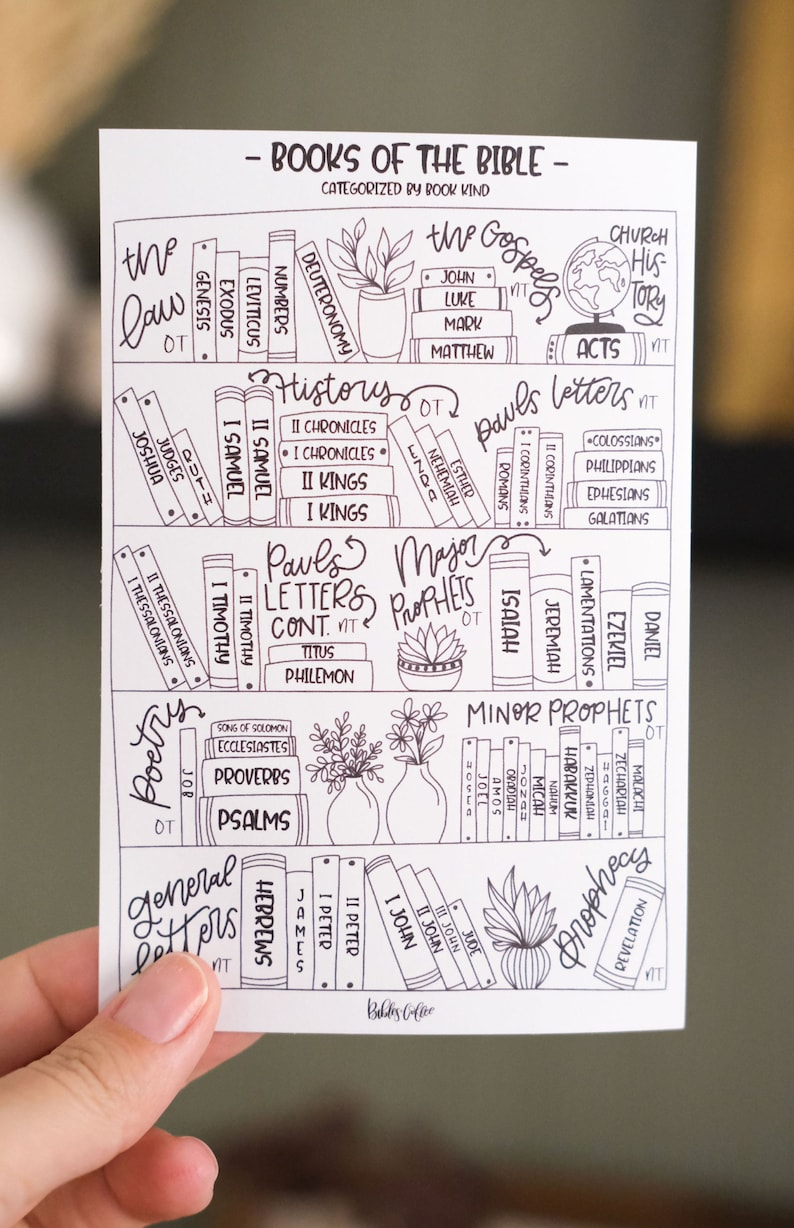 - BOOKS OF THE BIBLE -
CATEGORIZED BY BOOK KIND
the
law
OT
GENESIS
EXODUS
LEVITICUS
NUMBERS
DEUTERONOMY
the Gospels
NT
JOHN
LUKE
MARK
MATTHEW
CHURCH
HIS-
TORY
ACTS
NT
History
OT
JOSHUA
JUDGES
RUTH
I SAMUEL
II SAMUEL
II CHRONICLES
I CHRONICLES
II KINGS
I KINGS
EZRA
NEHEMIAH
ESTHER
pauls letters
NT
ROMANS
I CORINTHIANS
II CORINTHIANS
COLOSSIANS
PHILIPPIANS
EPHESIANS
GALATIANS
I THESSALONIANS
II THESSALONIANS
I TIMOTHY
II TIMOTHY
Pauls
LETTERS
CONT.
NT
TITUS
PHILEMON
Major
PROPHETS
OT
ISAIAH
JEREMIAH
LAMENTATIONS
EZEKIEL
DANIEL
Poetry
OT
JOB
SONG OF SOLOMON
ECCLESIASTES
PROVERBS
PSALMS
MINOR PROPHETS
OT
HOSEA
JOEL
AMOS
OBADIAH
JONAH
MICAH
NAHUM
HABAKKUK
ZEPHANIAH
HAGGAI
ZECHARIAH
MALACHI
general
letters
NT
HEBREWS
JAMES
I PETER
II PETER
I JOHN
II JOHN
III JOHN
JUDE
prophecy
REVELATION
NT
Bibles+Coffee